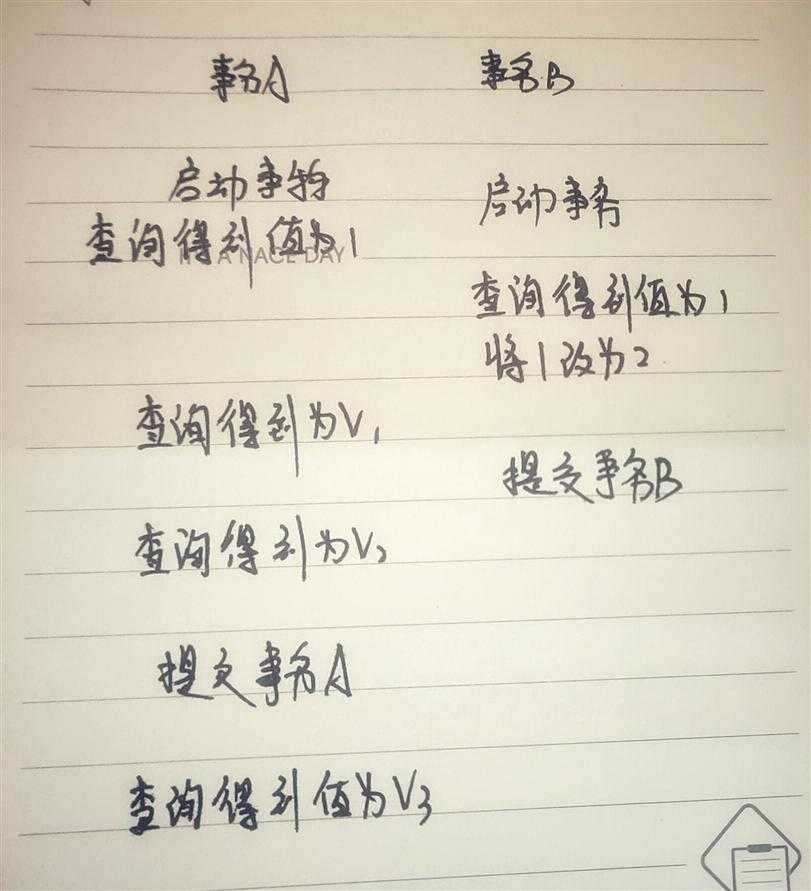 事务A 事务B
启动事物
启动事务
查询得到值为1
IT'S A NACE DAY
查询得到值为1
将1改为2
查询得到为V1
提交事务B
查询得到为V2
提交事务A
查询得到值为V3